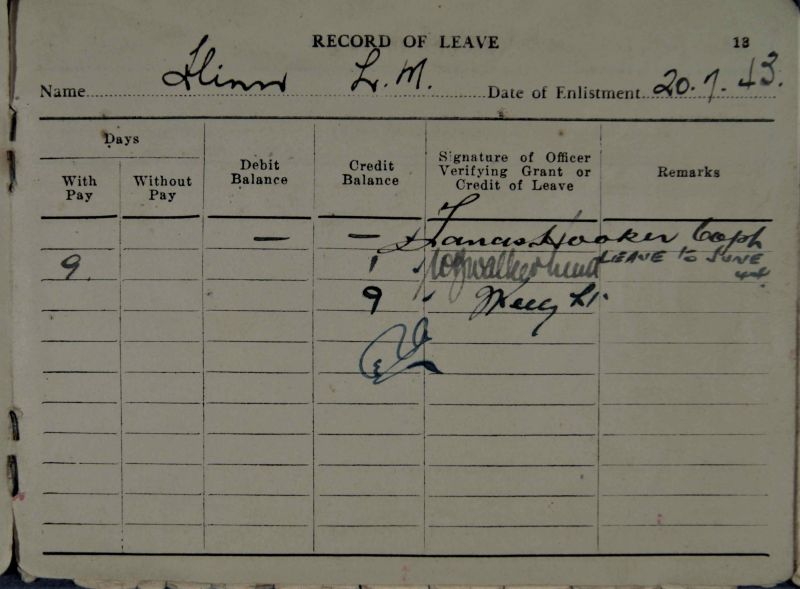 RECORD OF LEAVE 13
Name Flinn L. M. Date of Enlistment 20.7.43.
Days
With Pay
Without Pay
Debit Balance
Credit Balance
Signature of Officer Verifying Grant or Credit of Leave
Remarks
— — Hooker Capt
9. 1 LEAVE TO JUNE 44
9 Lt.